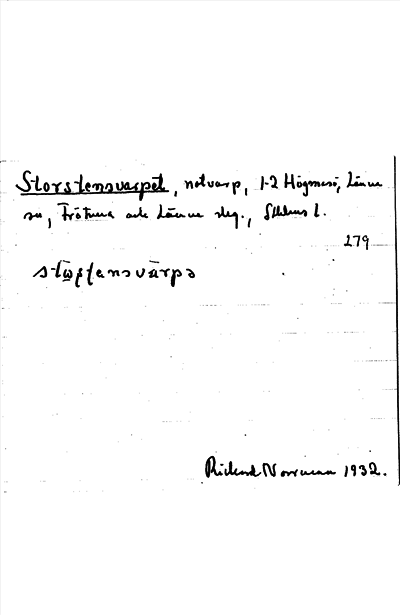 Storstensvarpet, notvarp, 1-2 Högmarsö, Länna
sn, Frötuna och Länna skg., Sthlms l.
279
stω̲ʂʈensvārpə
Richard Norrman 1932.